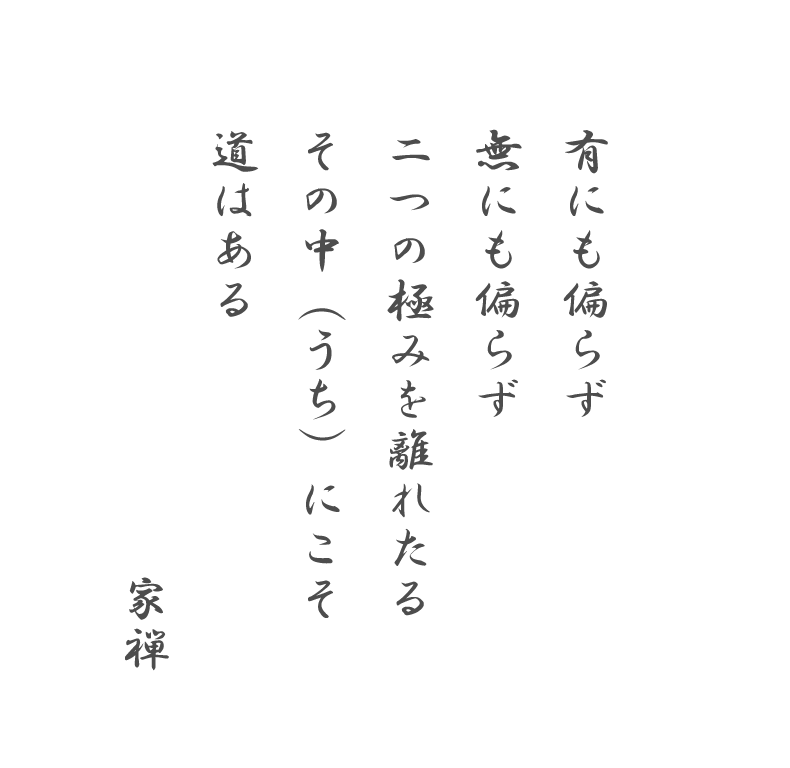 有にも偏らず
無にも偏らず
二つの極みを離れたる
その中（うち）にこそ
道はある
家禅